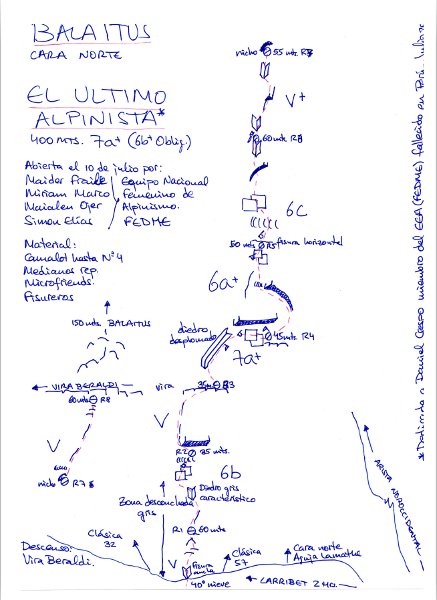 BALAITUS
CARA NORTE
EL ULTIMO
ALPINISTA*
400 MTS. 7a+ (6b+ Oblig.)
Abierta el 10 de julio por:
Maider Fraile
Miriam Marco
Maialen Ojer
Simon Elías
Equipo Nacional
Femenino de
Alpinismo.
FEDME
Material:
Camalot hasta Nº4
Medianos rep.
Microfriends.
Fisureros
nicho
55 mts.
V+
60 mts R8
6C
50 mts R5
fisura horizontal
6a+
diedro
desplomado
45 mts R4
7a+
150 mts. BALAITUS
VIRA BERALDI
60 mts R8
vira
R3
V
V
R2
35 mts.
nicho R7
6b
Diedro gris
característico
Zona desconchada
gris
R1
60 mts
Clásica
32
V
Fisura
ancha
Clásica
57
Cara norte
Aguja Lamathe
Descenso:
Vira Beraldi.
40º nieve
CARRIBET 2 HO.
ARISTA NOROCCIDENTAL
*Dedicada a Daniel Crespo miembro del EEA (FEDME) fallecido en Perú. Julio